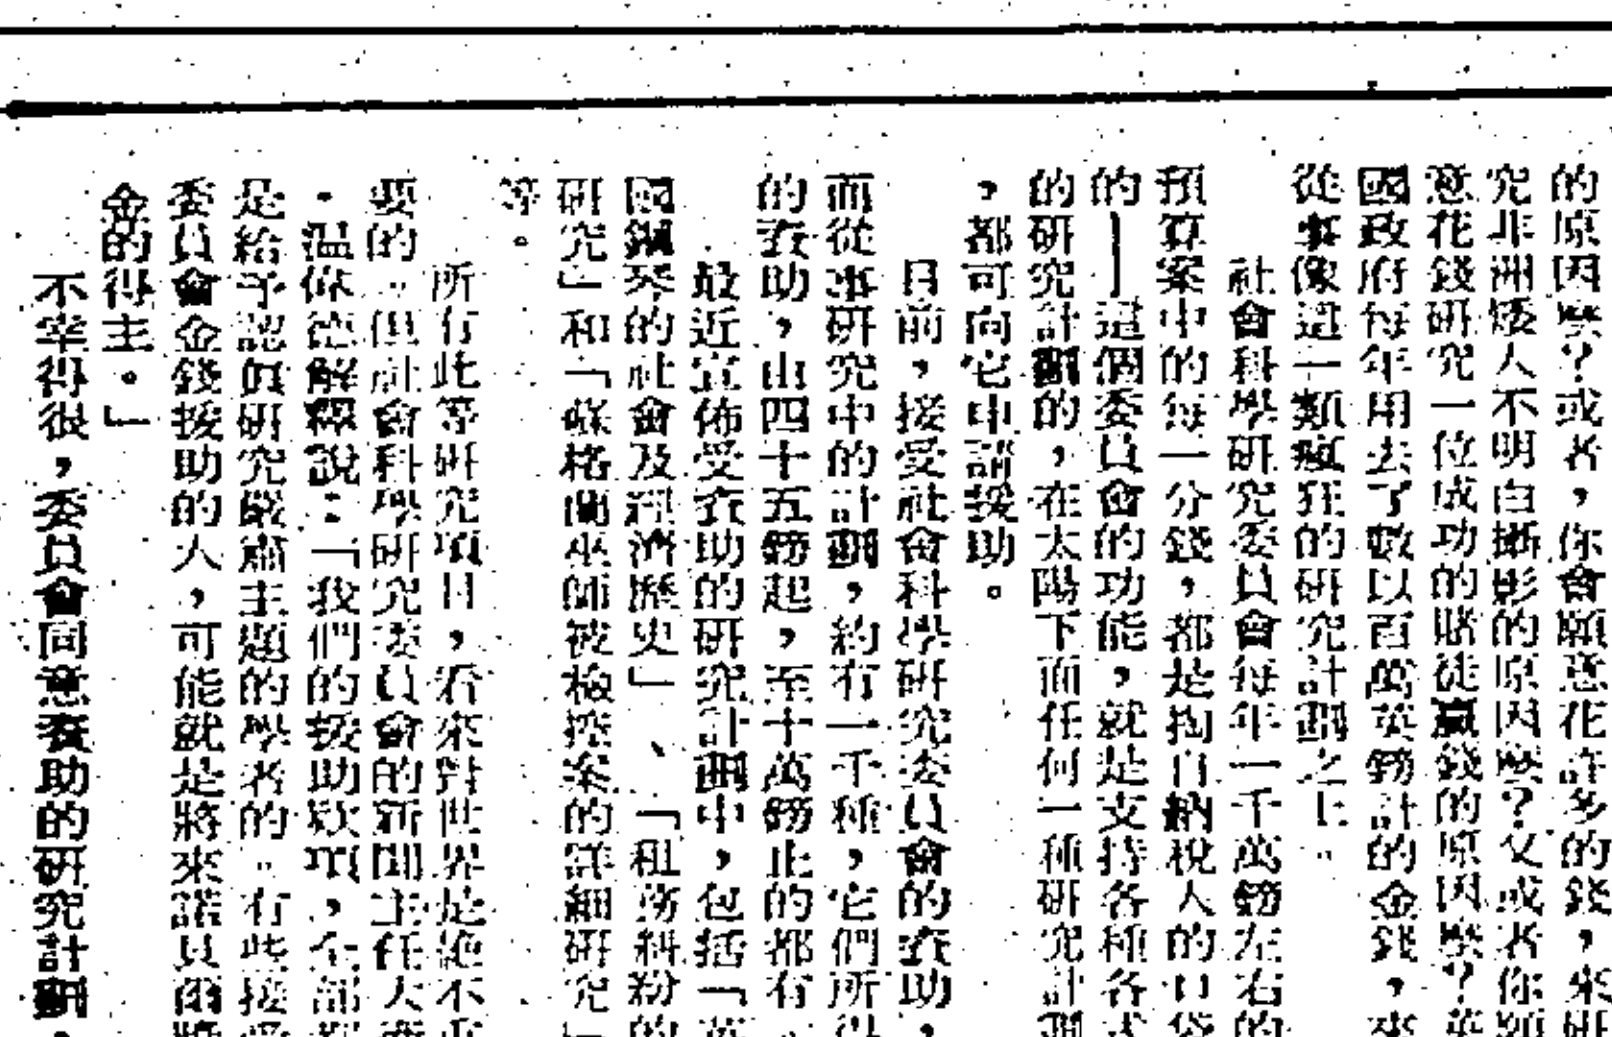 的原因麼？或者，你會願意花許多的錢，來研
究非洲矮人不明白攝影的原因麼？又或者你願
意花錢研究一位成功的賭徒贏錢的原因麼？英
國政府每年用去了數以百萬英鎊計的金錢，來
從事像這一類瘋狂的研究計劃之上。
社會科學研究委員會每年一千萬鎊左右的
預算案中的每一分錢，都是掏自納稅人的口袋
的——這個委員會的功能，就是支持各種各式
的研究計劃的，在太陽下面任何一種研究計劃
，都可向它申請援助。
目前，接受社會科學研究委員會的資助，
而從事研究中的計劃，約有一千種，它們所得
的資助，由四十五鎊起，至十萬鎊止的都有。
最近宣佈受資助的研究計劃中，包括「英
國鋼琴的社會及經濟歷史」、「租務糾紛的
研究」和「蘇格蘭巫師被檢控案的詳細研究」
等。
所有此等研究項目，看來對世界是絕不重
要的。但社會科學研究委員會的新聞主任大衛
·溫偉德解釋說：「我們的援助欵項，全部都
是給予認眞研究嚴肅主題的學者的。有些接受
委員會金錢援助的人，可能就是將來諾貝爾獎
金的得主。」
不幸得很，委員會同意資助的研究計劃，